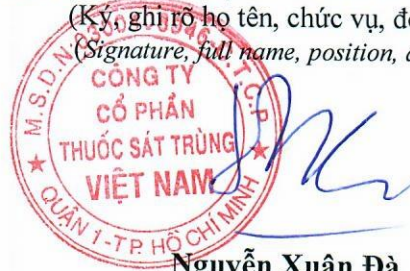 (Ký, ghi rõ họ tên, chức vụ,
(Signature, full name, position,
M.S.D.N
T.C.P
CÔNG TY
CỔ PHẦN
THUỐC SÁT TRÙNG
VIỆT NAM
QUẬN 1-T.P. HỒ CHÍ MINH
Nguyễn Xuân Đà